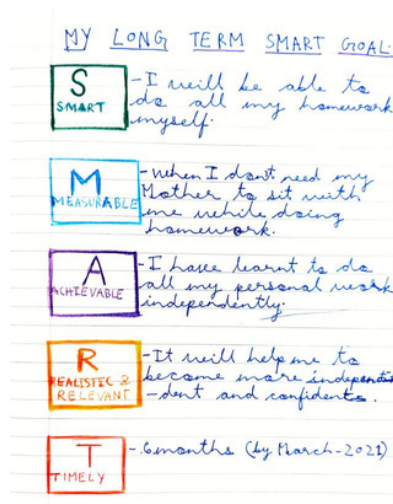 MY LONG TERM SMART GOAL.
S
SMART
- I will be able to
do all my homework
myself.
M
MEASURABLE
- when I dont need my
Mother to sit with
me while doing
homework.
A
ACHIEVABLE
- I have learnt to do
all my personal work
independently.
R
REALISTIC &
RELEVANT
- It will help me to
become more indepen
-dent and confidents.
T
TIMELY
- 6months (by March-2021)